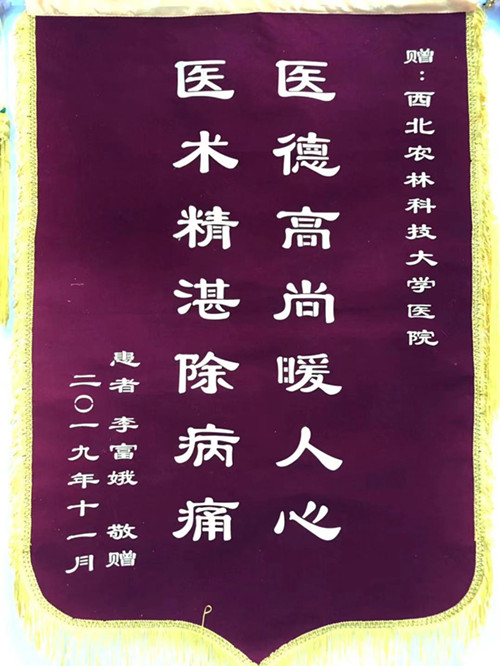 赠：西北农林科技大学医院
医德高尚暖人心
医术精湛除病痛
患者 李富娥 敬赠
二〇一九年十一月